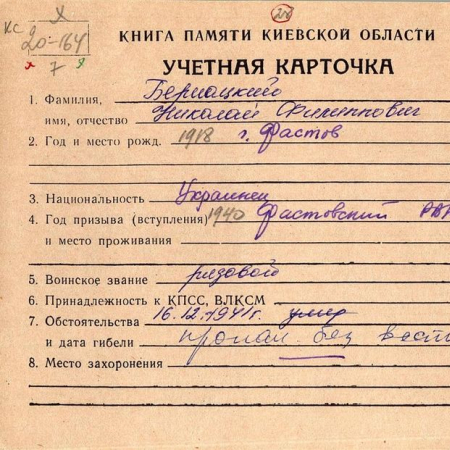 Х
20
КС 9
20-164
х 7 х
КНИГА ПАМЯТИ КИЕВСКОЙ ОБЛАСТИ
УЧЕТНАЯ КАРТОЧКА
1. Фамилия,
имя, отчество Николай Филиппович
2. Год и место рожд. 1918 г. Фастов
3. Национальность Украинец
4. Год призыва (вступления) 1940 Фастовский РВК
и место проживания
5. Воинское звание рядовой
6. Принадлежность к КПСС, ВЛКСМ
7. Обстоятельства 16.12.1941г. умер
и дата гибели пропал без вест
8. Место захоронения —